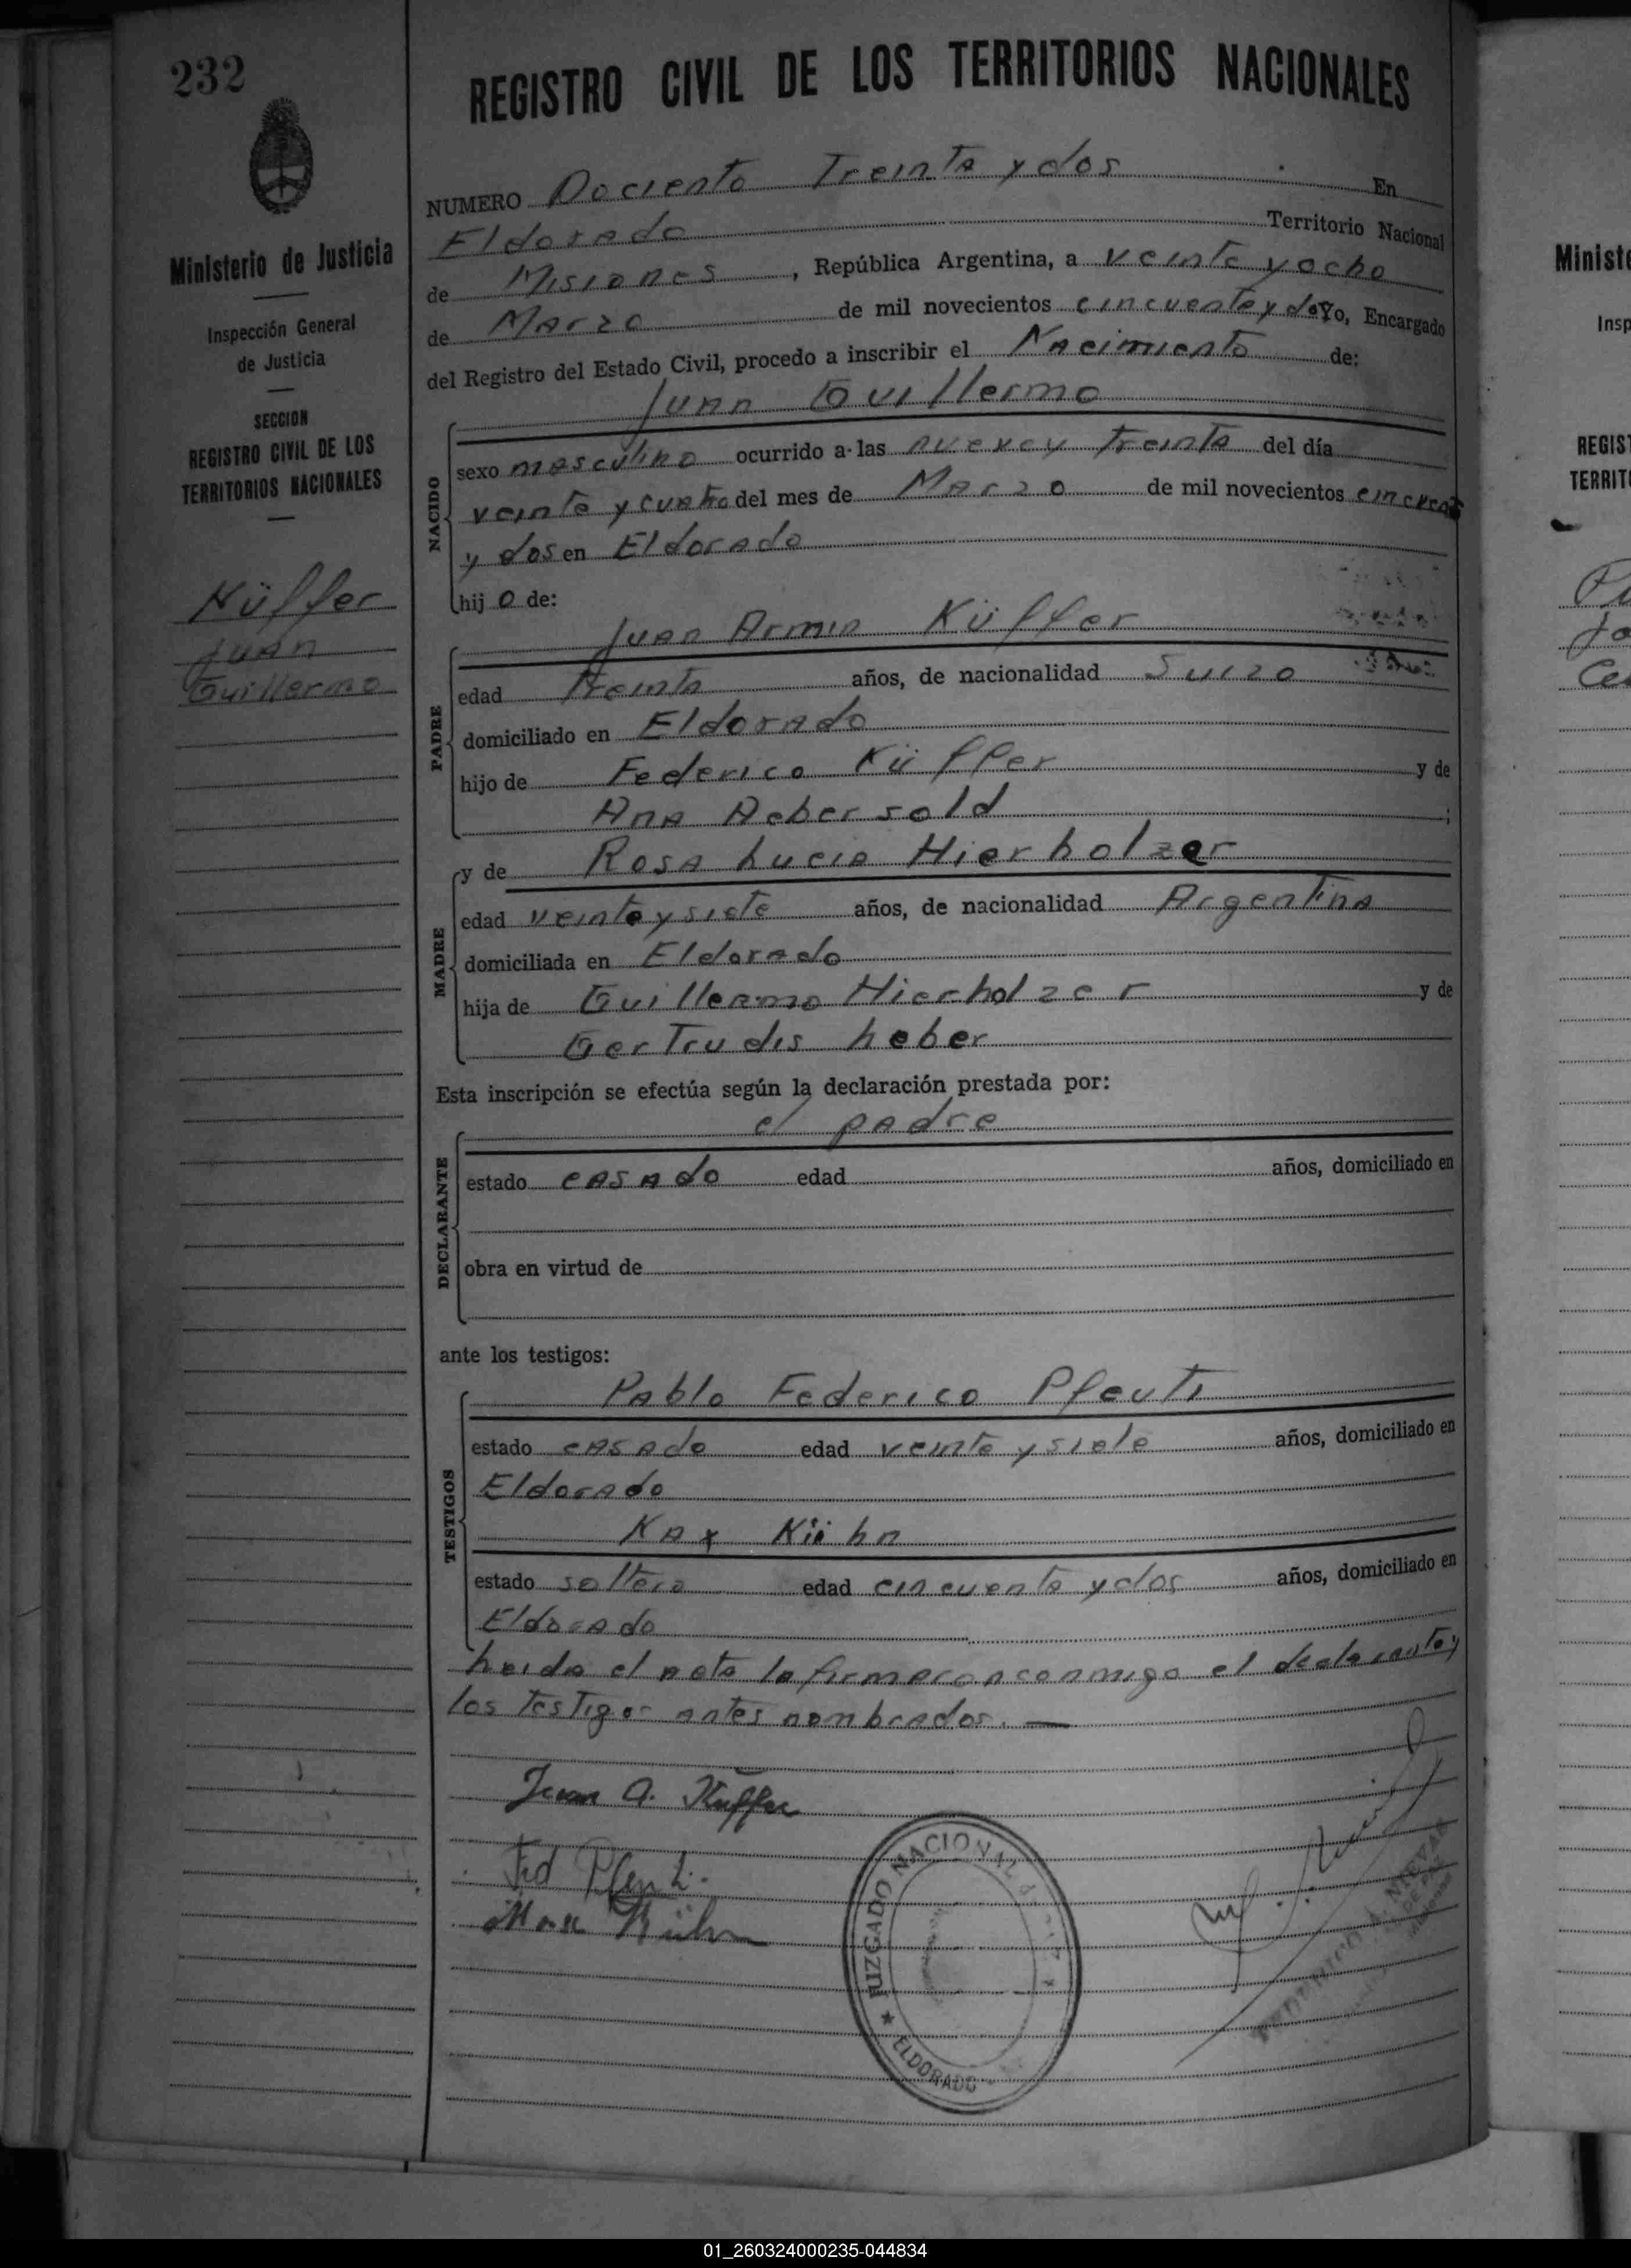 232
Ministerio de Justicia
Inspección General
de Justicia
SECCION
REGISTRO CIVIL DE LOS
TERRITORIOS NACIONALES
Küffer
Juan
Guillermo
REGISTRO CIVIL DE LOS TERRITORIOS NACIONALES
NUMERO Dociento Treinta y dos En
Eldorado Territorio Nacional
de Misiones, República Argentina, a veinte y ocho
de Marzo de mil novecientos cincuenta y dos Yo, Encargado
del Registro del Estado Civil, procedo a inscribir el Nacimiento de:
Juan Guillermo
NACIDO
sexo masculino ocurrido a las nueve y treinta del día
veinte y cuatro del mes de Marzo de mil novecientos cincuenta
y dos en Eldorado
hijo de:
Juan Armin Küffer
PADRE
edad treinta años, de nacionalidad Suizo
domiciliado en Eldorado
hijo de Federico Küffer y de
Ana Aebersold;
y de Rosa Lucia Hierholzer
MADRE
edad veinte y siete años, de nacionalidad Argentina
domiciliada en Eldorado
hija de Guillermo Hierholzer y de
Gertrudis Leber
Esta inscripción se efectúa según la declaración prestada por:
el padre
DECLARANTE
estado casado edad años, domiciliado en
obra en virtud de
ante los testigos:
Pablo Federico Pfeuti
TESTIGOS
estado casado edad veinte y siete años, domiciliado en
Eldorado
Kax Kühn
estado soltero edad cincuenta y dos años, domiciliado en
Eldorado
Leida el acta la firmaron conmigo el declarante y
los testigos antes nombrados. —
Juan A. Küffer
Fed Pfeuti.
Max Kühn
JUZGADO NACIONAL
★ ELDORADO
Minist
Insp
REGIST
TERRIT
01_260324000235-044834